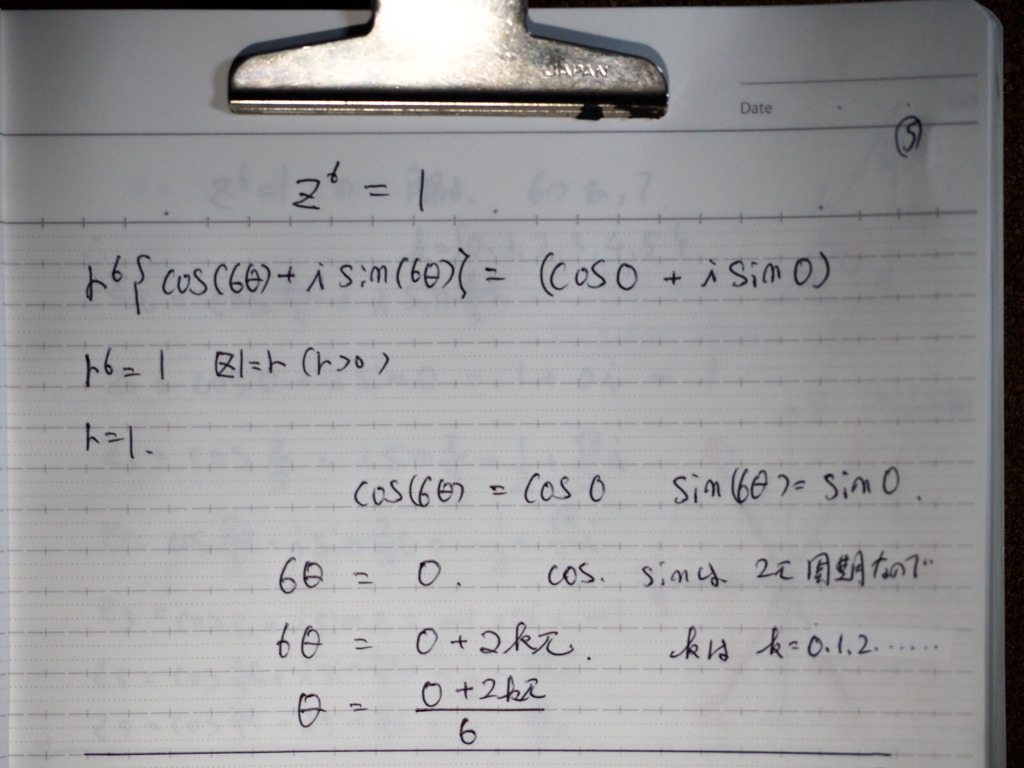 JAPAN
Date
⑤
z⁶ = 1
r⁶{cos(6θ) + i sin(6θ)} = (cos0 + i sin0)
r⁶ = 1 |z|=r (r>0)
r=1.
cos(6θ) = cos0 sin(6θ) = sin0.
6θ = 0. cos. sinは 2π周期なので
6θ = 0 + 2kπ. kは k=0.1.2.……
θ = (0 + 2kπ)/6